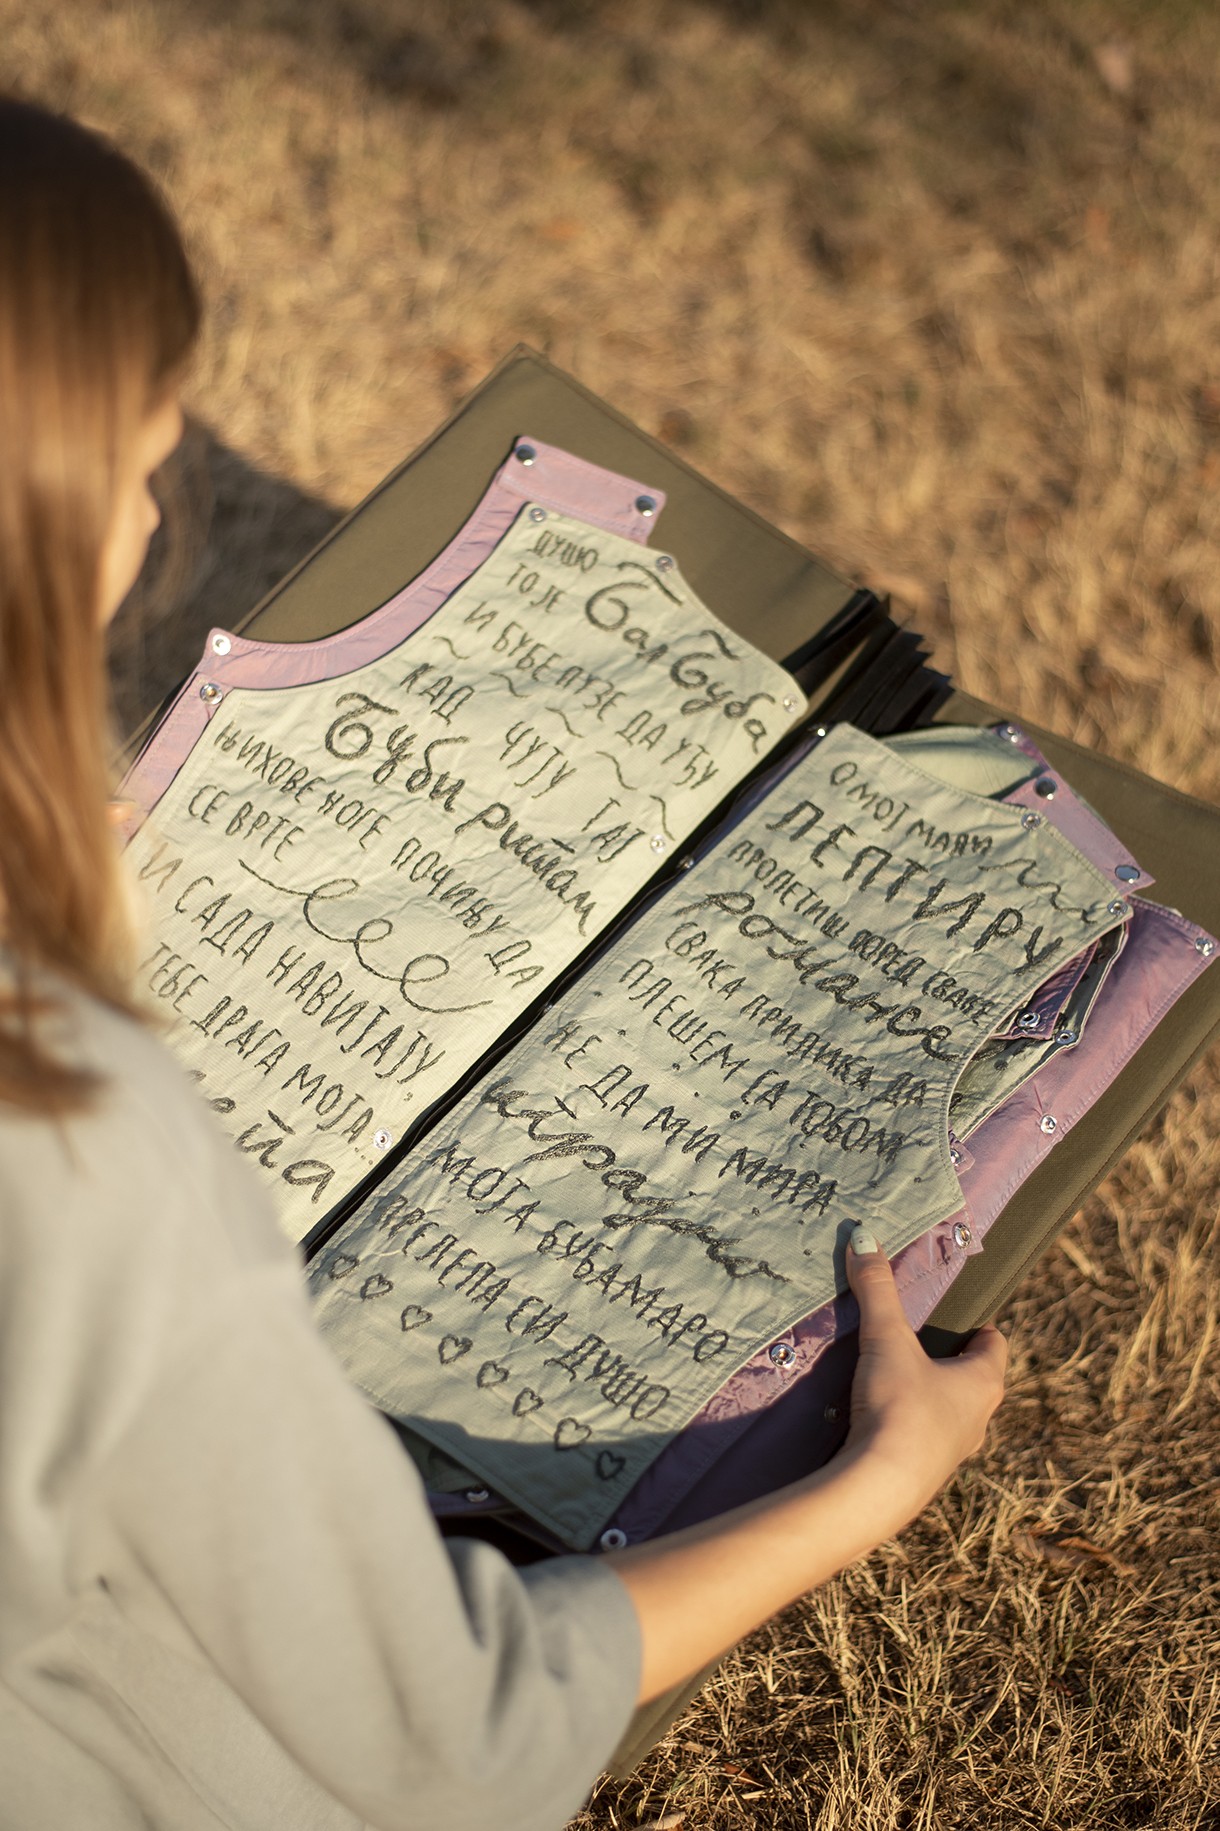 ДУШО
ТО ЈЕ Бал Буба
И БУБЕ ПУЗЕ ДА УЂУ
КАД ЧУЈУ ТАЈ
Буби ритам
ЊИХОВЕ НОГЕ ПОЧИЊУ ДА
СЕ ВРТЕ
И САДА НАВИЈАЈУ
ТЕБЕ ДРАГА МОЈА...
О МОЈ МАЛИ
ЛЕПТИРУ
ПРОЛЕТИШ ПОРЕД СВАКЕ
романсе
СВАКА ПРИЛИКА ДА
ПЛЕШЕМ СА ТОБОМ
НЕ ДА МИ МИРА
МОЈА БУБАМАРО
ПРЕЛЕПА СИ ДУШО